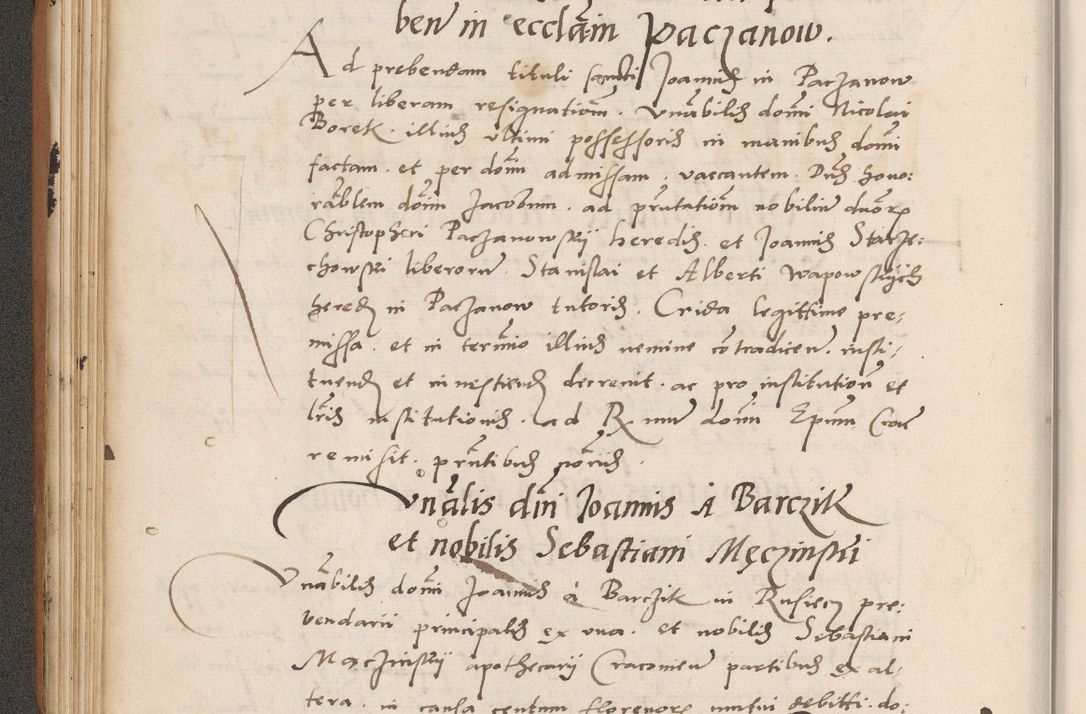 ben in ecclām Paczanow.
Ad prebendam tituli sancti Joannis in Paczanow
per liberam resignationem. Vnābilis domī Nicolai
Borek. illius ultimi possessoris in manibus domī
factam. et per dom̄ admissam. vaecantem. Dn̄s hono:
rāblem dom̄ Jacobum. ad prn̄tationem nobilium duorꝝ
Christopheri Paczanowskij heredis. et Joannis Starze:
chowski liberorum. Stanislai et Alberti Wapowskijch
hered in Paczanow tutoris. Crida legittime pre:
missa. et in termīo illius nemine cōtradicen. insti,
tuend et investiend decrevit. ac pro institutione et
lr̄is institutionis. ad R mum domī Epum Crac
remisit. prn̄tibus nōriis.
Vnālis dm̄i Joannis à Barczik
et nobilis Sebastiani Męczinski
Vnābilis domī Joannis à Barczik in Rusiecz pre:
bendarii principalis ex vna. et nobilis Sebastiani
Maczinskij apothecarij Cracovien partibus ex al:
tera. in causa centum florenorꝝ mutui debitti. do: